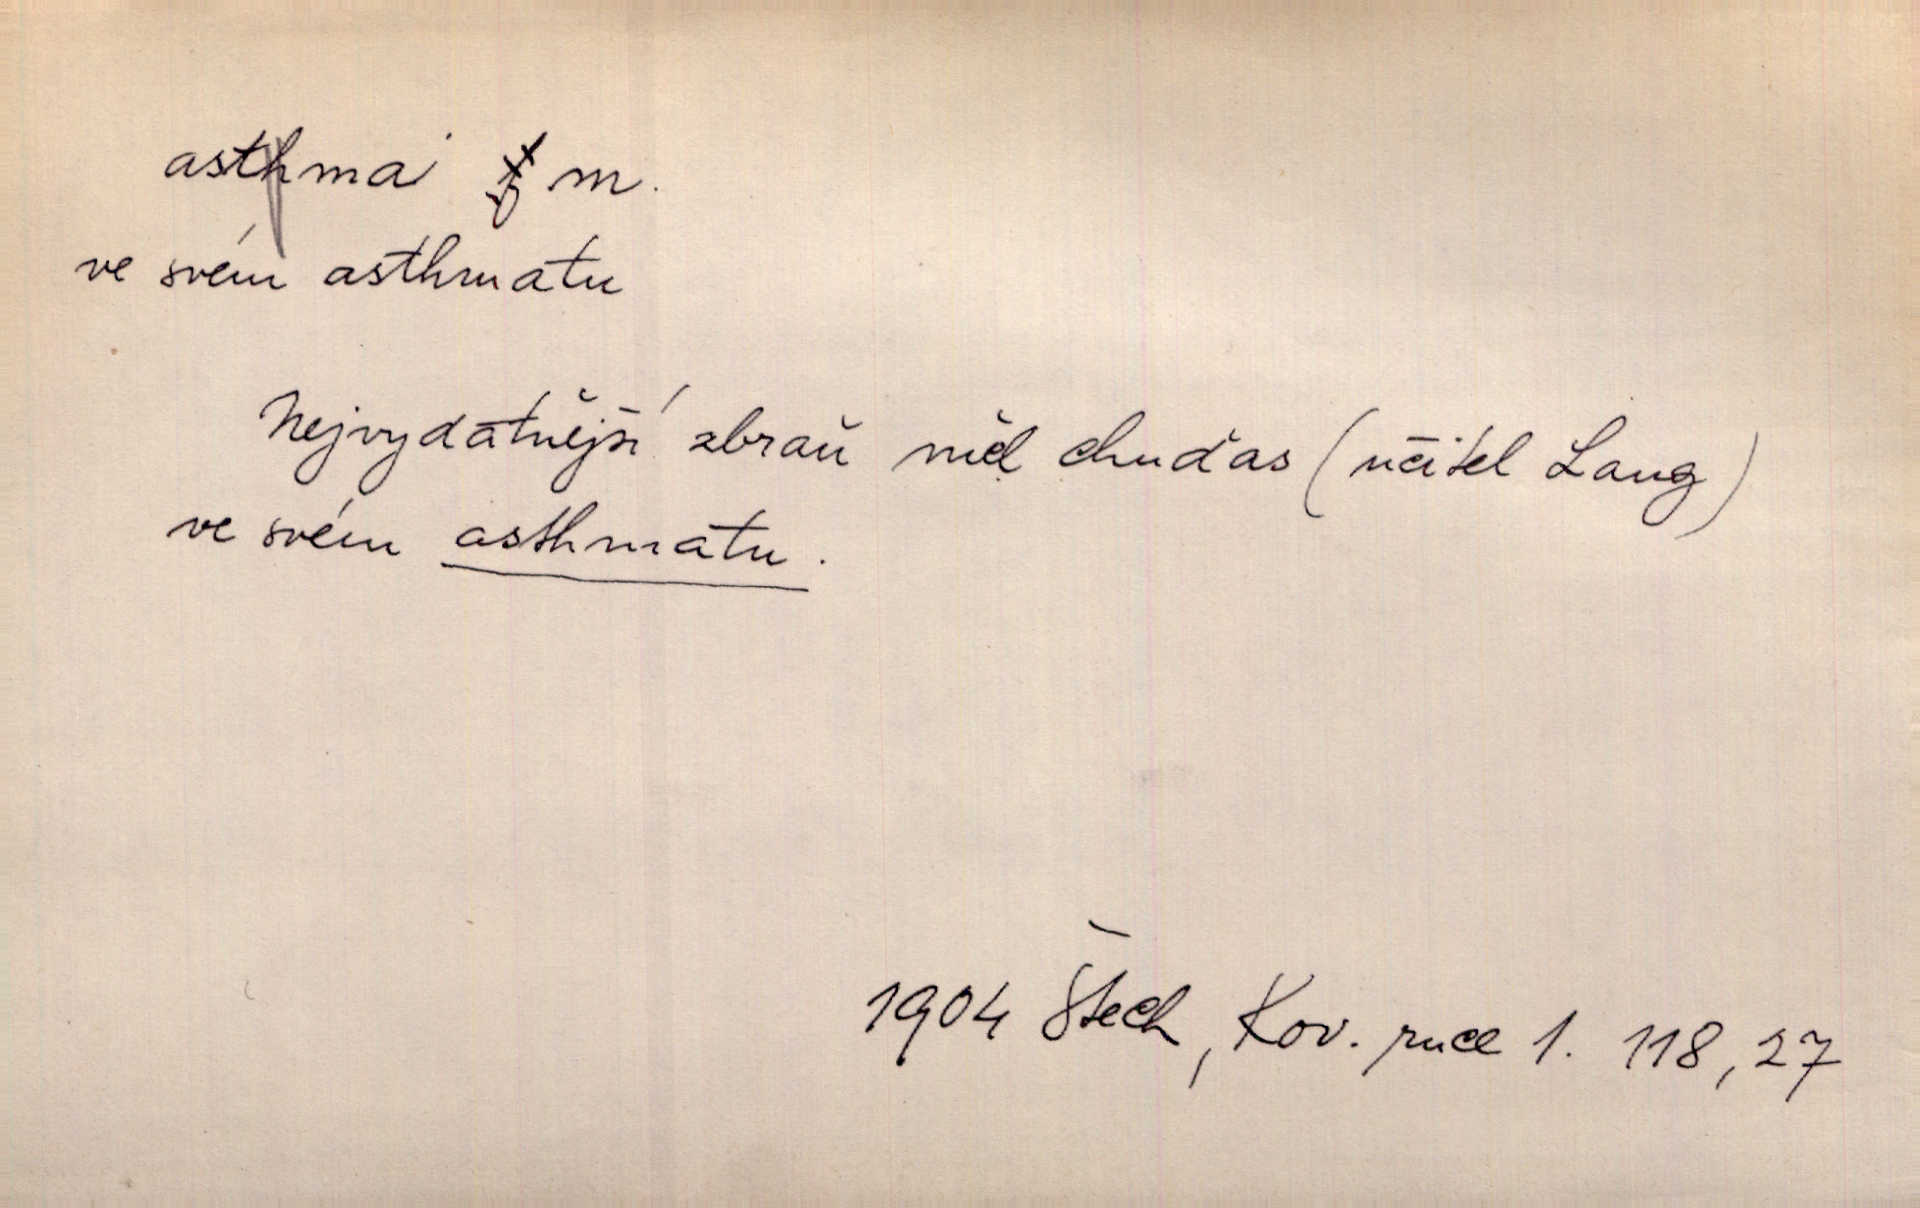 asthma m.
ve svém asthmatu
Nejvydatnější zbraň měl chuďas (učitel Lang)
ve svém asthmatu.
1904 Štech, Kov. ruce 1. 118,27